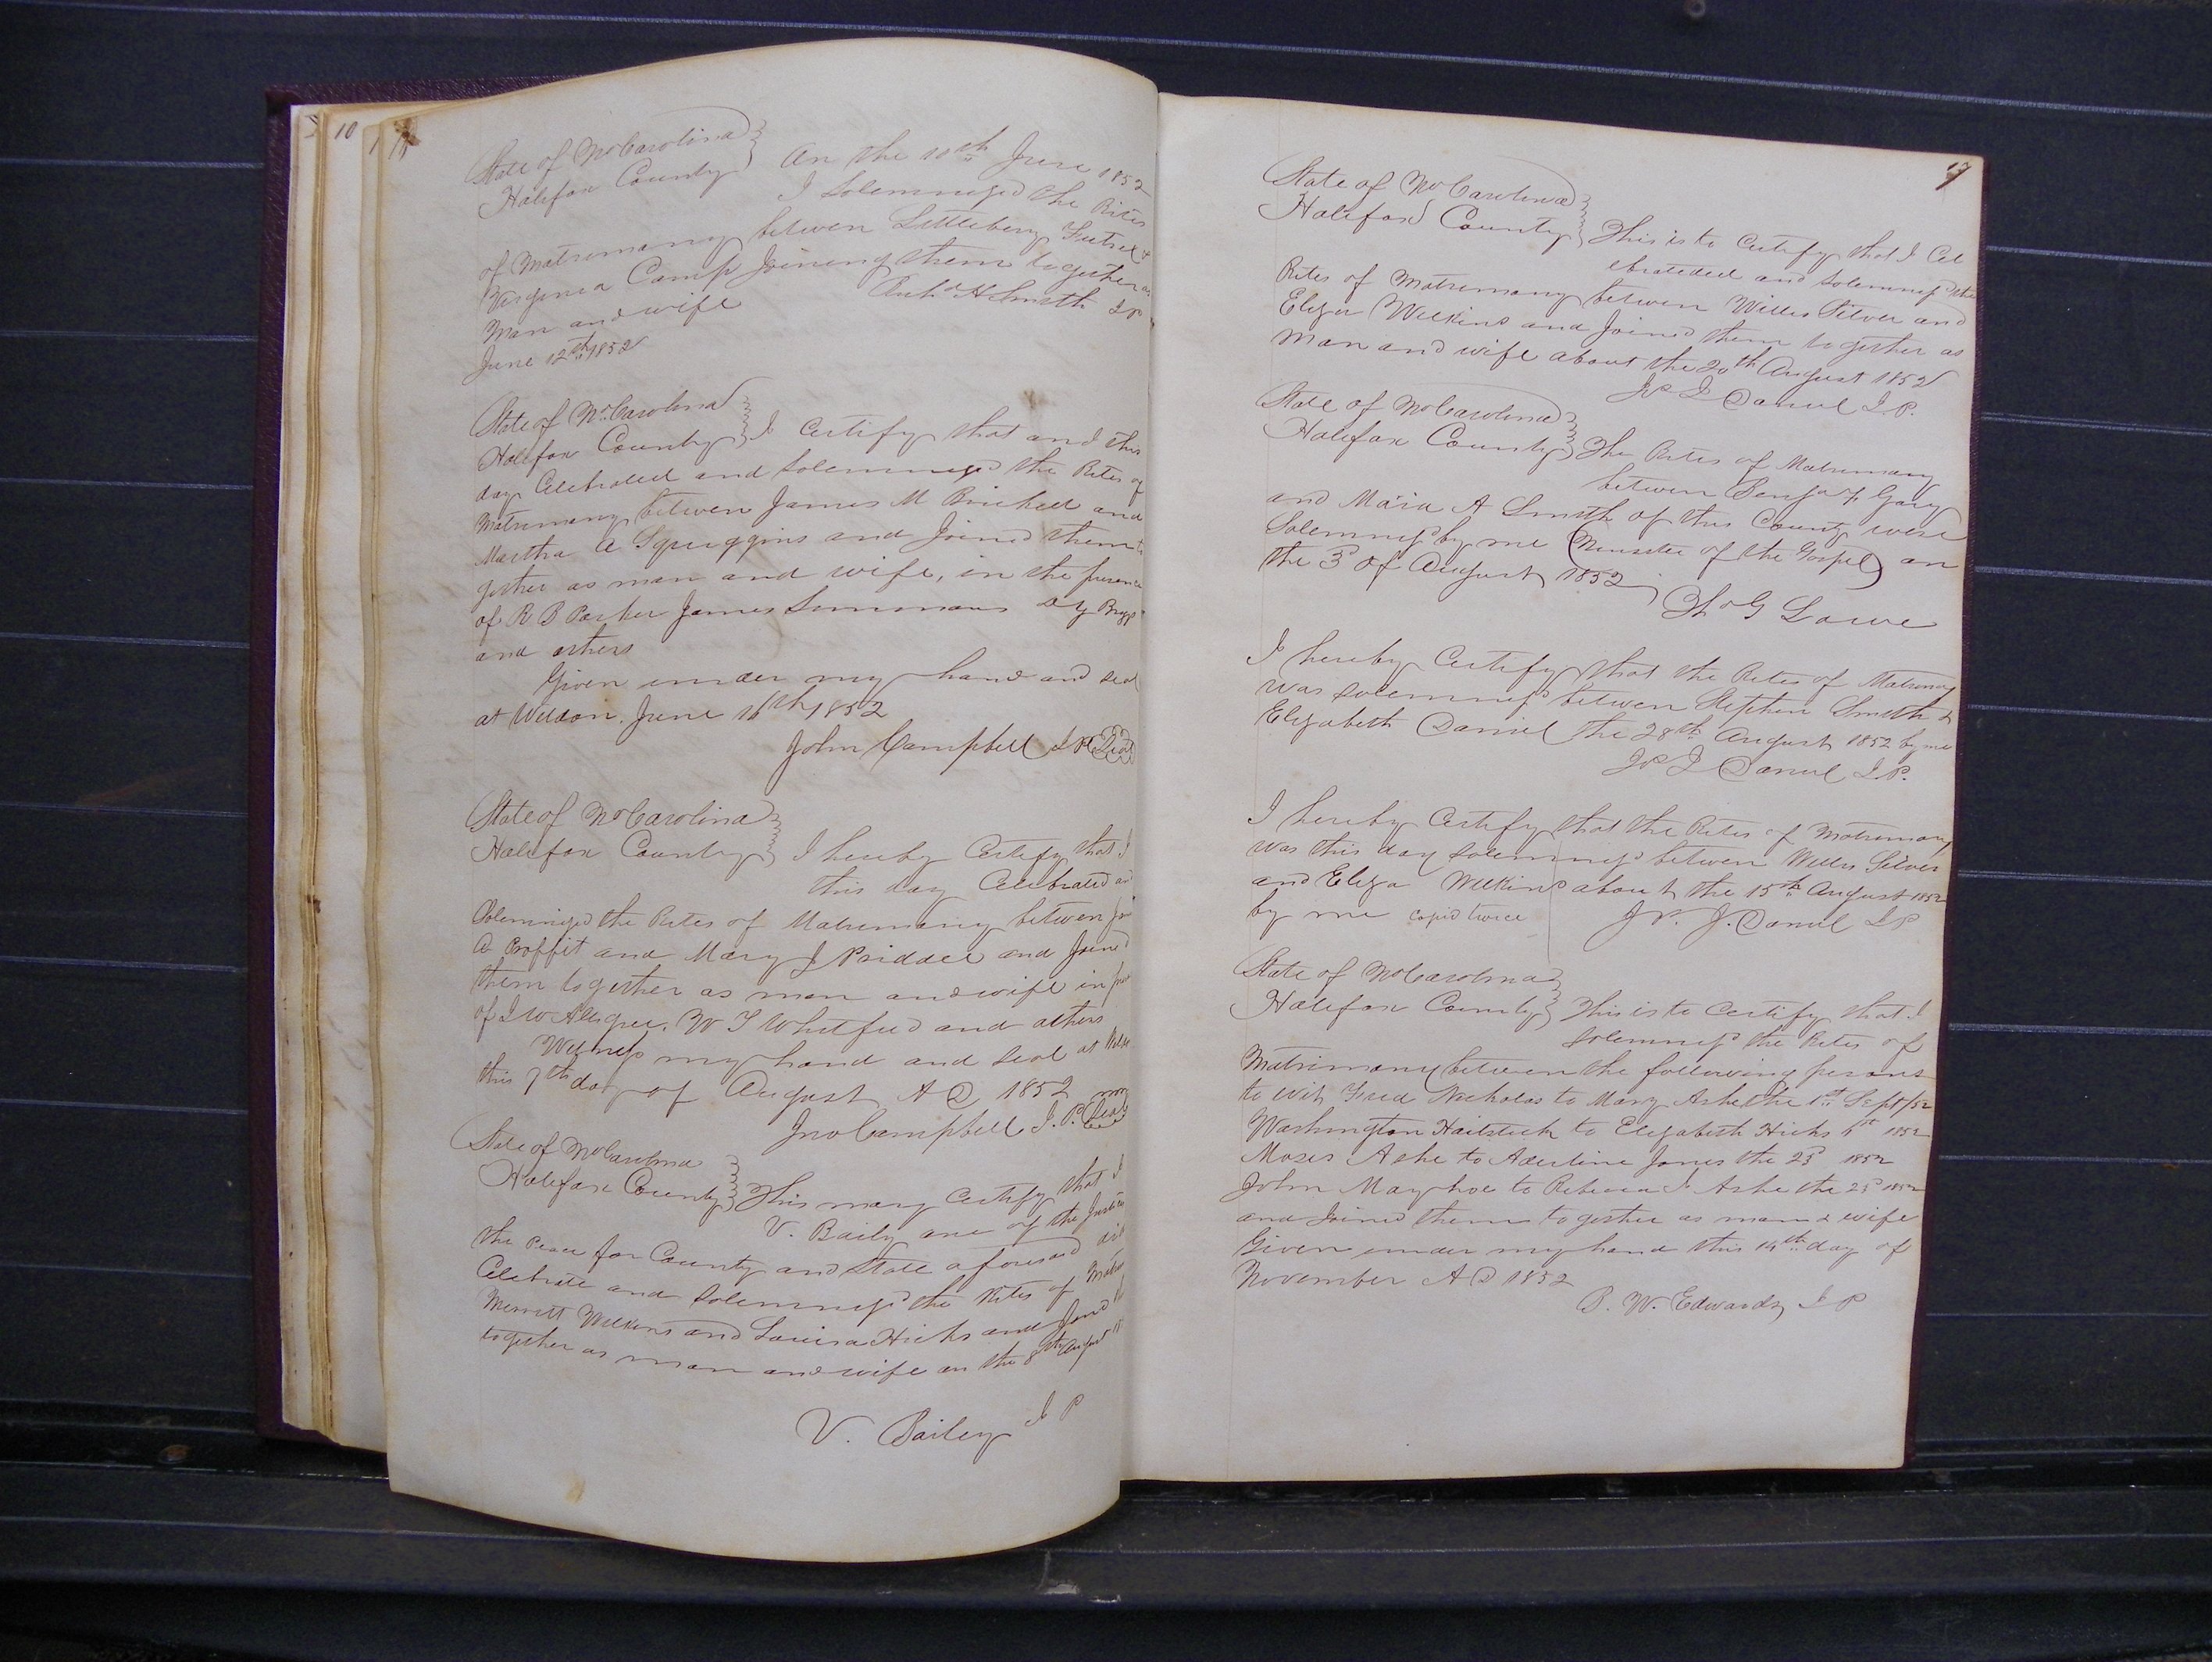 10
State of No Carolina
Halifax County
On the 10th June 1852
I Solemnized the Rites
of Matrimony between Littleberry &
Virginia Camp Joining them together as
Man and wife
H Smith J P
June 12th 1852
State of No Carolina
Halifax County I Certify that and this
day Celebrated and Solemnized the Rites of
Matrimony between James M and
Martha A Squiggins and Joined them to
gether as man and wife, in the presence
of R B Parker James Simmons
and others
Given under my hand and seal
at Weldon June 16th 1852
John Campbell J P Seal
State of No Carolina
Halifax County I hereby Certify that I
this day Celebrated and
Solemnized the Rites of Matrimony between
A Proffit and Mary J Priddee and Joined
them together as man and wife in
of W T Whitfield and others
Witness my hand and seal at
this 7th day of August A D 1852
Jno Campbell J. P. Seal
State of No Carolina
Halifax County This may Certify that I
V. Baily one of the Justices
the Peace for County and State aforesaid did
Celebrate and Solemnized the Rites of
Merritt Wilkins and Louisa Hicks and Joined
together as man and wife on the 8th August
V. Bailey J P
17
State of No Carolina
Halifax County This is to Certify that I Cel
ebrateded and Solemnizd the
Rites of Matrimony between Willis Silver and
Eliza Wilkins and Joined them together as
Man and wife about the 20th August 1852
J. Daniel J. P.
State of No Carolina
Halifax County The Rites of Matrimony
between Gary
and Maria A Smith of this County were
Solemnizd by me (Minister of the Gospel) on
the 3d of August 1852
Tho G Lowe
I hereby Certify that the Rites of Matrimony
was solemnizd between Stephen Smith &
Elizabeth Daniel the 28th August 1852 by me
J Daniel J. P.
I hereby Certify that the Rites of Matrimony
was this day solemnizd between Willis Silver
and Eliza Wilkins about the 15th August 1852
by me copid twice J. Daniel J P
State of No Carolina
Halifax County This is to Certify that I
solemnizd the Rites of
Matrimony between the following persons
to wit Fred Nicholas to Mary Ashe the 1st Sept/52
Washington Hailstock to Elizabeth Hicks 1st 1852
Moses Ashe to Aderline Jones the 23d 1852
John Mayhoe to Rebecca J. Ashe the 23d 1852
and Joined them together as man & wife
Given under my hand this 14th day of
November A D 1852
B. W. Edwards J P